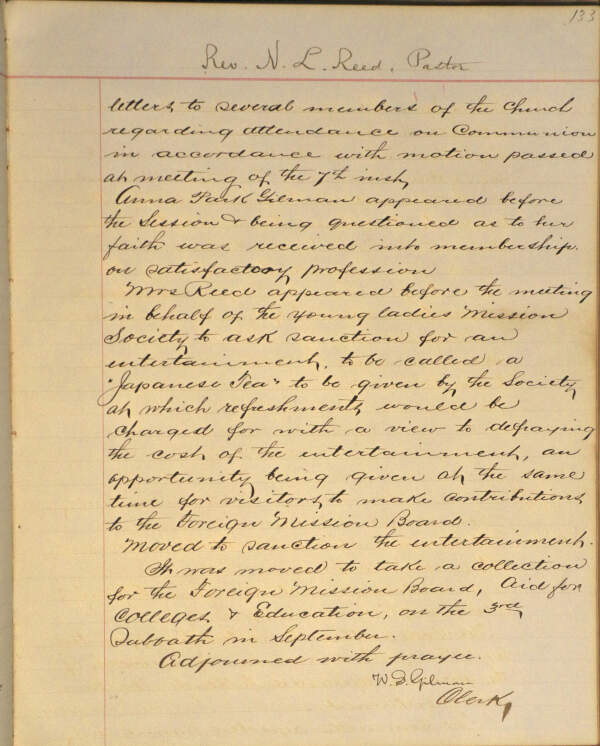 133
Rev. N. L. Reed, Pastor
letters to several members of the Church
regarding attendance on Communion
in accordance with motion passed
at meeting of the 7th inst,
Anna Park Gilman appeared before
the Session & being questioned as to her
faith was received into membership.
on satisfactory profession
Mrs Reed appeared before the meeting
in behalf of the young ladies Mission
Society to ask sanction for an
entertainment, to be called a
"Japanese Tea" to be given by the Society
at which refreshments would be
charged for with a view to defraying
the cost of the entertainment, an
opportunity being given at the same
time for visitors to make contributions
to the Foreign Mission Board.
Moved to sanction the entertainment.
It was moved to take a collection
for the Foreign Mission Board, Aid for
Colleges & Education, on the 3rd
Sabbath in September.
Adjourned with prayer.
Gilman
Clerk,